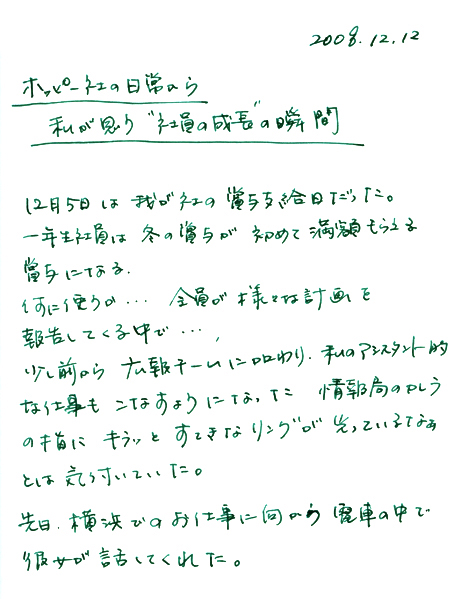 2008.12.12
ホッピー社の日常から
私が思う“社員の成長”の瞬間
12月5日は我が社の賞与支給日だった。
一年生社員は冬の賞与が初めて満額もらえる
賞与になる。
何に使うか… 全員が様々な計画を
報告してくる中で…、
少し前から広報チームに加わり、私のアシスタント的
な仕事もこなすようになった 情報局のかしら
の指にキラッとすてきなリングが光っているなぁ
とは気付いていた。
先日、横浜でのお仕事に向かう電車の中で
彼女が話してくれた。